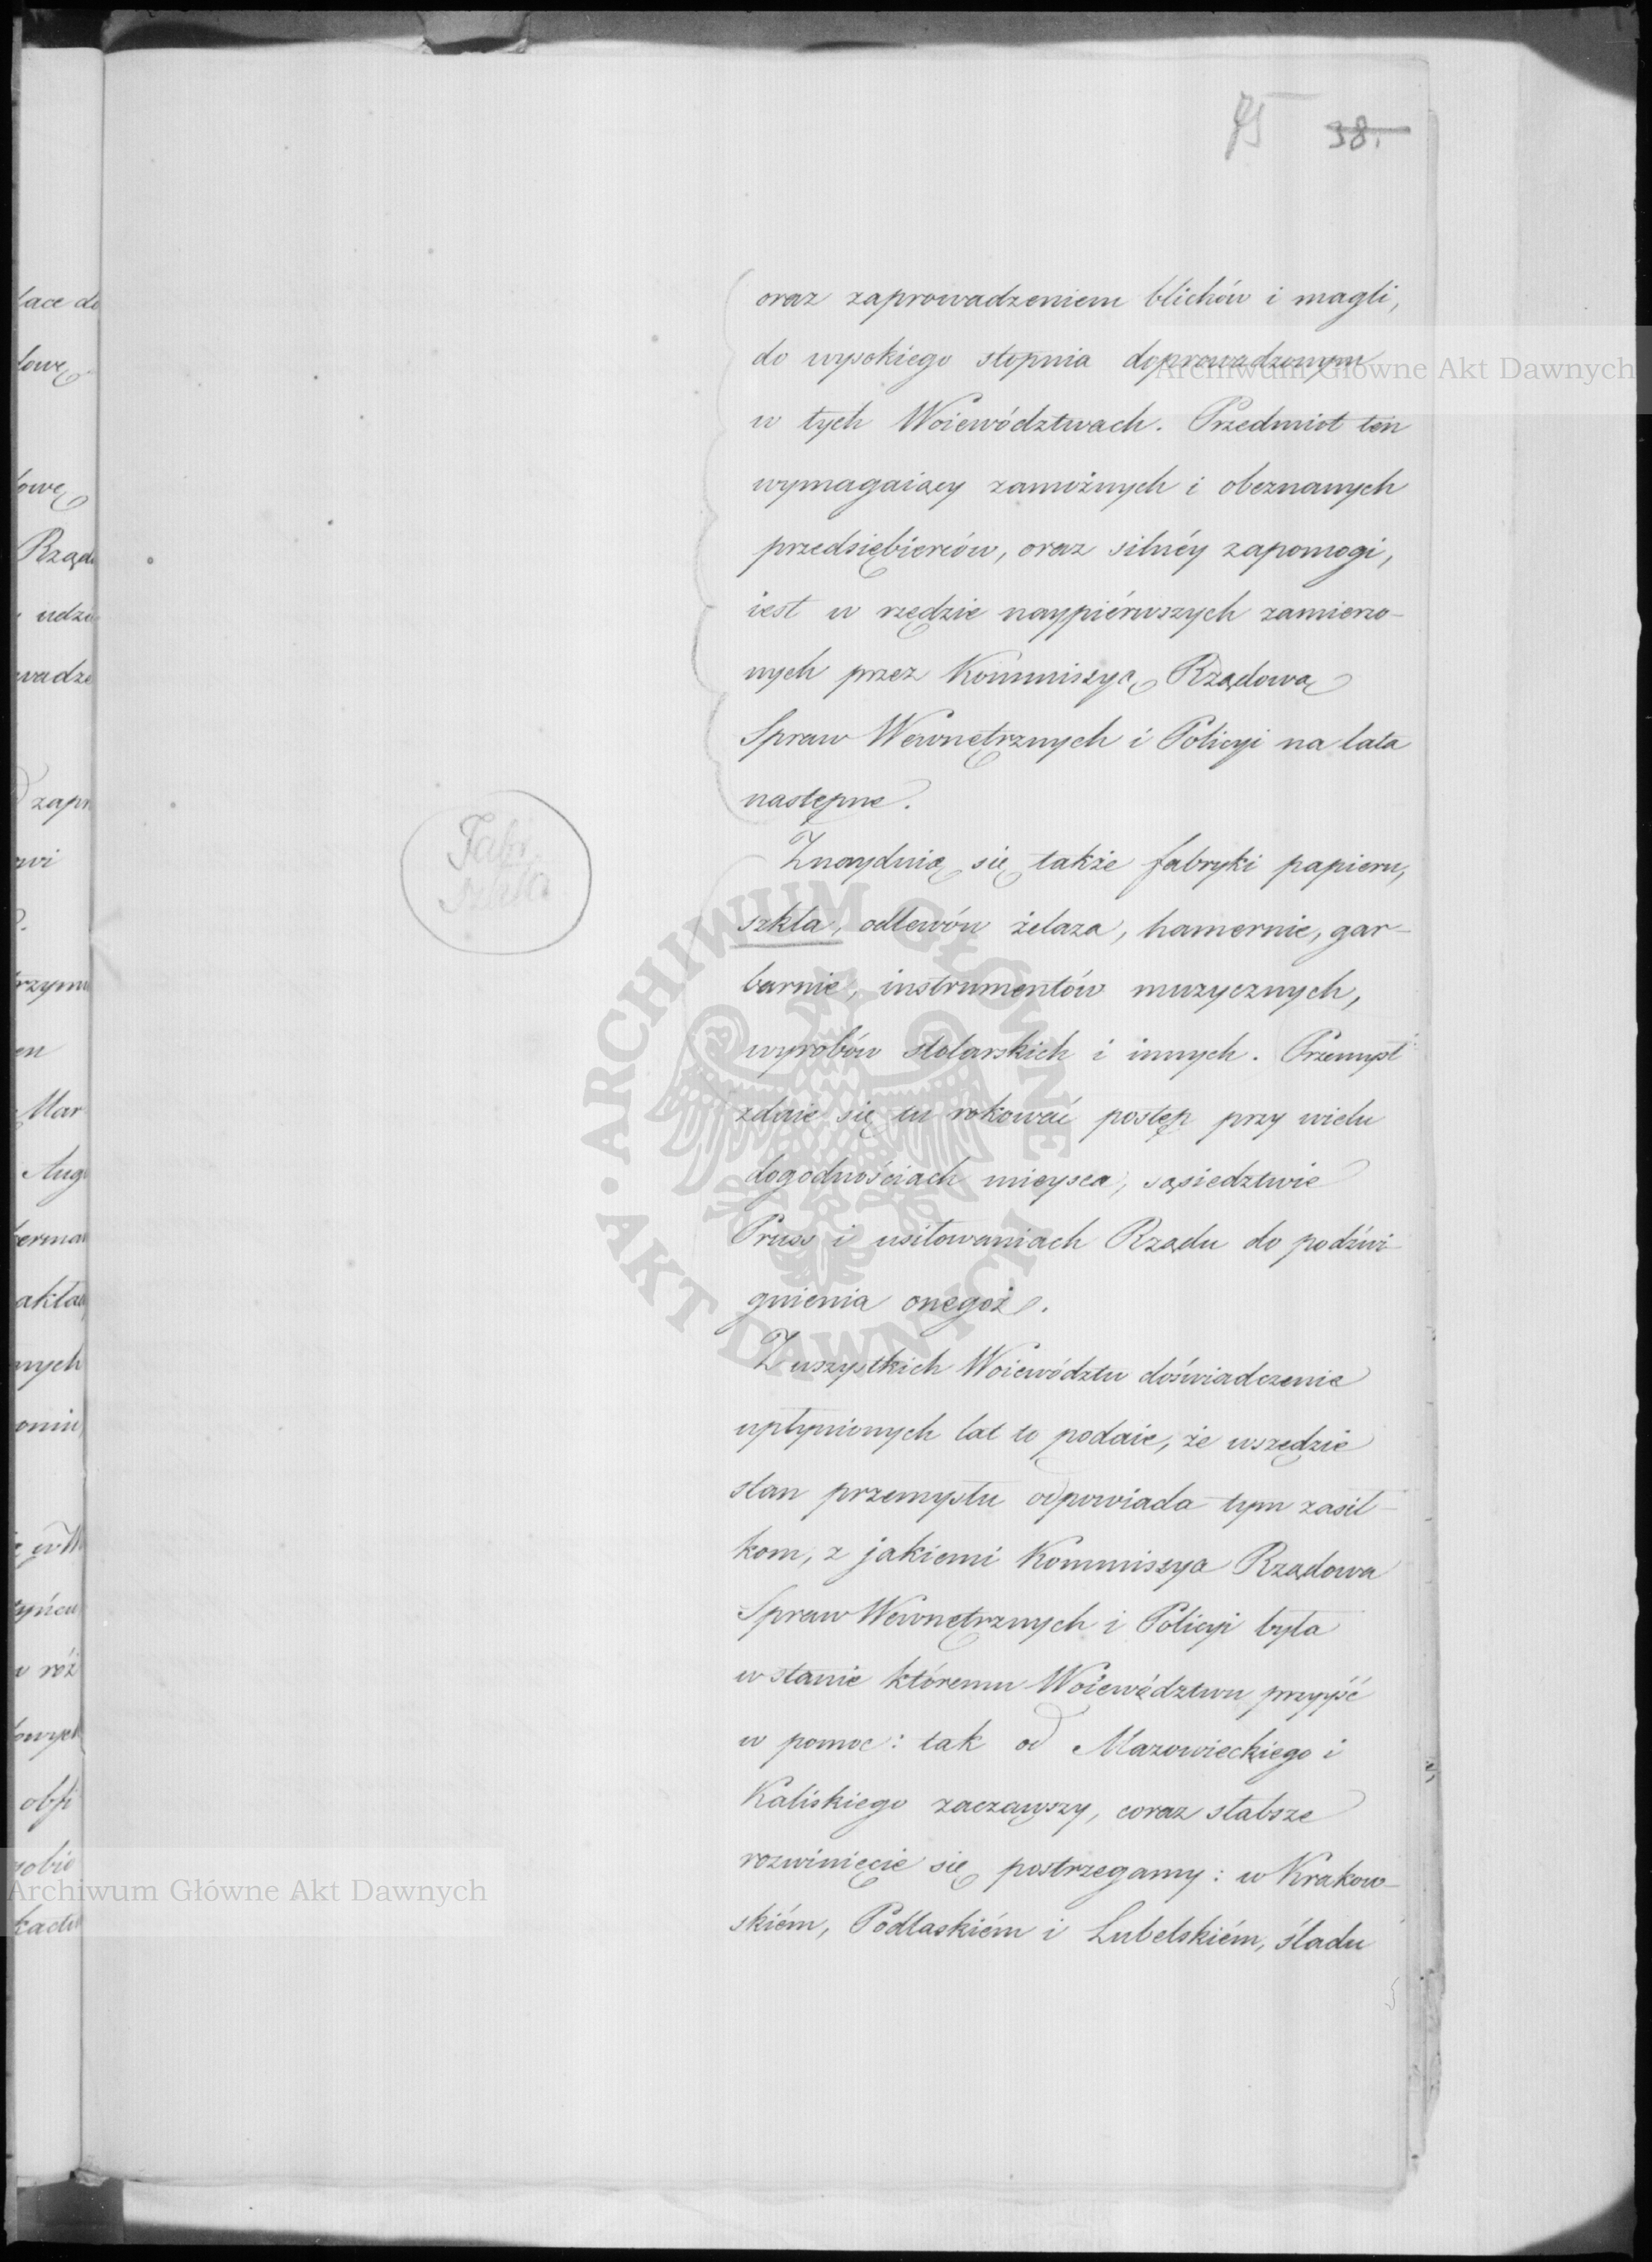 75 38.
oraz zaprowadzeniem blichów i magli,
do wysokiego stopnia doprowadzonym
w tych Woiewództwach. Przedmiot ten
wymagaiący zamożnych i obeznanych
przedsiębierców, oraz silnéy zapomogi,
iest w rzędzie naypiérwszych zamierzo-
nych przez Kommissyą Rządową
Spraw Wewnętrznych i Policyi na lata
następne.
Fabr.
szkła
Znayduią się także fabryki papieru,
szkła, odlewów żelaza, hamernie, gar-
barnie, instrumentów muzycznych,
wyrobów stolarskich i innych. Przemysł
zdaie się tu rokować postęp przy wielu
dogodnościach mieysca, sąsiedztwie
Pruss i usiłowaniach Rządu do podźwi-
gnienia onegoż.
Z wszystkich Woiewództw doświadczenie
upłynionych lat to podaie, że wszędzie
stan przemysłu odpowiada tym zasił-
kom, z jakiemi Kommissya Rządowa
Spraw Wewnętrznych i Policyi była
w stanie któremu Woiewództwu przyyść
w pomoc: tak od Mazowieckiego i
Kaliskiego zacząwszy, coraz słabsze
rozwinięcie się postrzegamy: w Krakow-
skiém, Podlaskiém i Lubelskiém, śladu
Archiwum Główne Akt Dawnych
ARCHIWUM GŁÓWNE
AKT DAWNYCH
Archiwum Główne Akt Dawnych